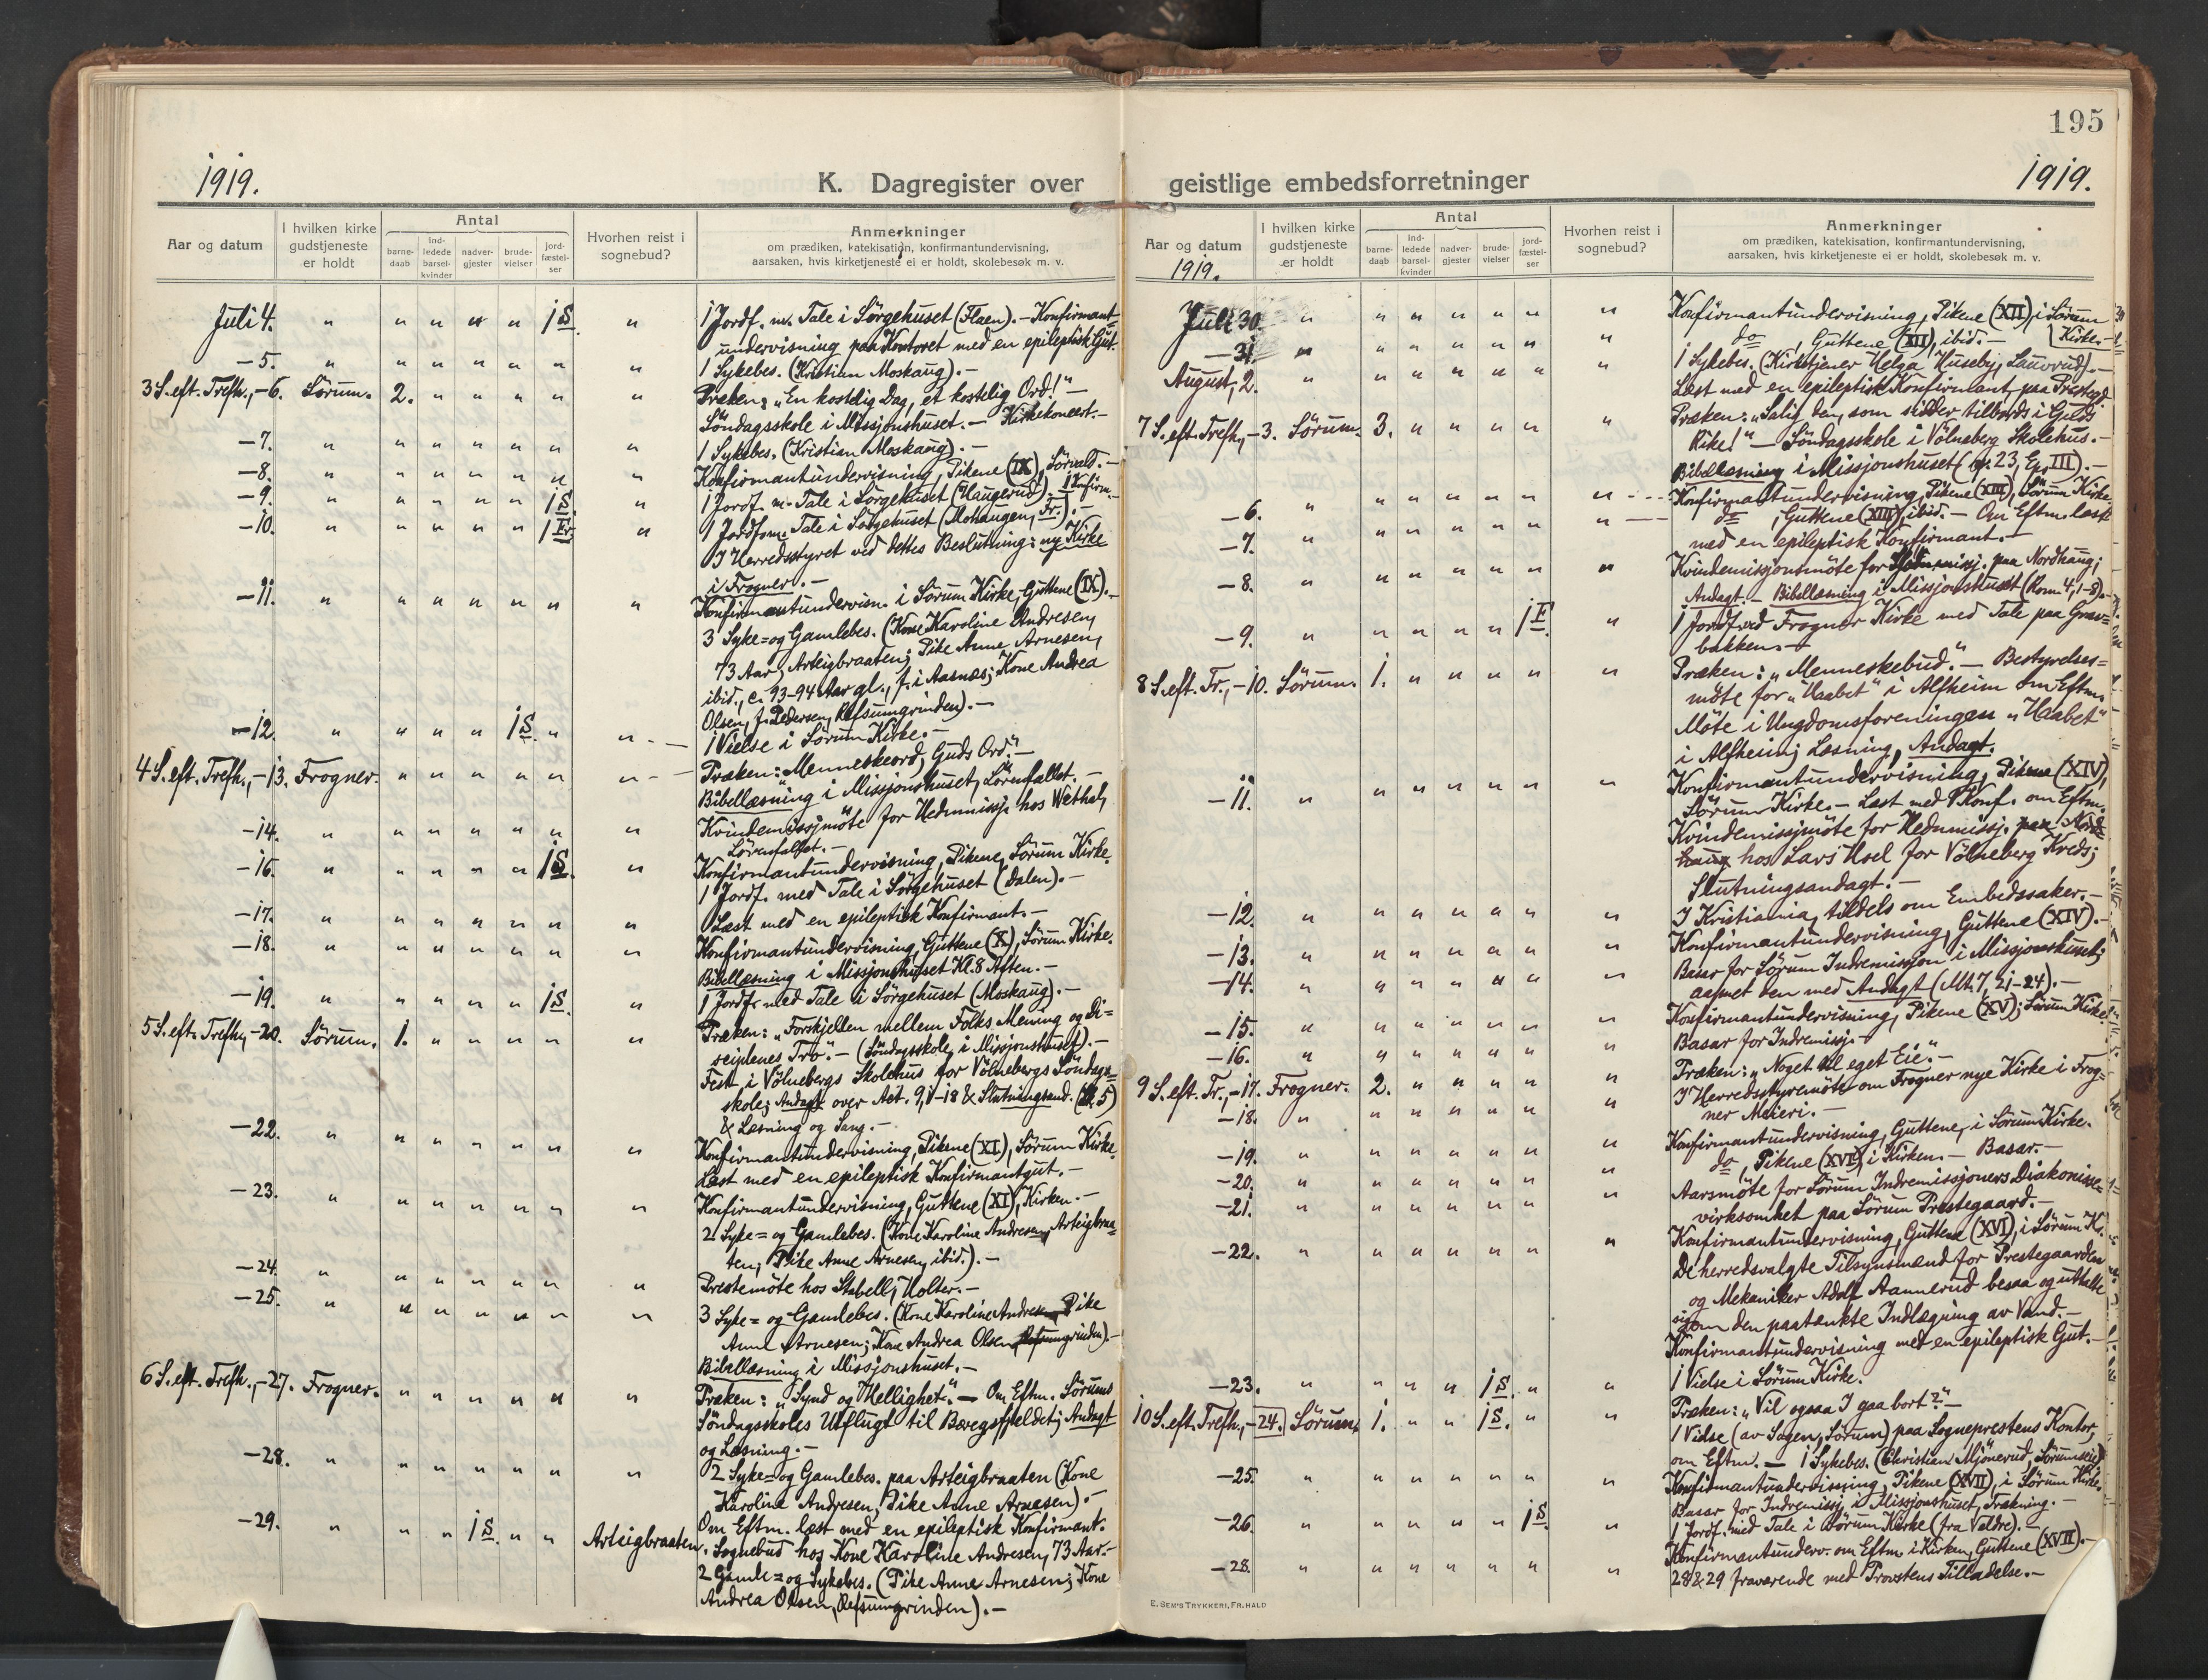 195
1919.
K. Dagregister over geistlige embedsforretninger
1919.
Aar og datum
I hvilken kirke gudstjeneste er holdt
Antal
barne-daab
ind-ledede barsel-kvinder
nadver-gjester
brude-vielser
jord-fæstel-ser
Hvorhen reist i sognebud?
Anmerkninger
om prædiken, katekisation, konfirmantundervisning,
aarsaken, hvis kirketjeneste ei er holdt, skolebesøk m. v.
Juli 4. " " " " " 1 S. " 1 Jordf. m. Tale i Sörgehuset (Flaen). – Konfirmant-
undervisning paa Kontoret med en epileptisk Gut.
– 5. " " " " " " " 1 Sykebes. (Kristian Moskaug). –
3 S. eft. Trefh., – 6. Sörum. 2. " " " " " Præken: „En kostelig Dag, et kostelig Ord!" –
Söndagsskole i Missjonshuset. – Kirkekoncert. –
– 7. " " " " " " " 1 Sykebes. (Kristian Moskaug). –
– 8. " " " " " " " Konfirmantundervisning, Pikene (IX), Sörvald. –
– 9. " " " " " 1 S. " 1 Jordf. m. Tale i Sörgehuset (Haugerud); 1 Konfirm.
– 10. " " " " " 1 Fr. " 1 Jordf. m. Tale i Sörgehuset (Mohaugen, Fr.). –
I Herredsstyret ved dettes Beslutning: ny Kirke
i Frogner. –
– 11. " " " " " " " Konfirmantundervisn. i Sörum Kirke, Guttene (IX). –
3 Syke= og Gamlebes. (Kone Karoline Andresen,
73 Aar, Arteigbraaten; Pike Anne Arnesen,
ibid., c. 93–94 Aar gl., f. i Aasnes; Kone Andrea
Olsen, f. Pedersen, Refsumgrinden). –
– 12. " " " " 1 S. " " – – 1 Vielse i Sörum Kirke. –
4 S. eft. Trefh., – 13. Frogner. " " " " " " – – Præken: „Menneskeord, Guds Ord". –
Bibellæsning i Missjonshuset, Lörenfallet. –
– 14. " " " " " " " Kvindemissjmöte for Hednmissj. hos Wethal,
Lörenfallet. –
– 16. " " " " " 1 S. " Konfirmantundervisning, Pikene, Sörum Kirke.
1 Jordf. med Tale i Sörgehuset (Dalen). –
– 17. " " " " " " " Læst med en epileptisk Konfirmant. –
– 18. " " " " " " " Konfirmantundervisning, Guttene (X), Sörum Kirke.
Bibellæsning i Missjonshuset Kl. 8 Aften. –
– 19. " " " " " 1 S. " 1 Jordf. med Tale i Sörgehuset (Moskaug). –
5 S. eft. Trefh., – 20. Sörum. 1. " " " " " Præken: „Forskjellen mellem Folks Mening og Di=
sciplenes Tro". – (Söndagsskole i Missjonshuset). –
Fest i Völnebergs Skolehus for Völnebergs Söndags=
skole; Andagt over Act. 9, 1–18 & Slutningsand.
& Læsning og Sang. –
– 22. " " " " " " " Konfirmantundervisning, Pikene (XI), Sörum Kirke.
Læst med en epileptisk Konfirmantgut. –
– 23. " " " " " " " Konfirmantundervisning, Guttene (XI), Kirken. –
2 Syke= og Gamlebes. (Kone Karoline Andresen, Arteigbraa=
ten; Pike Anne Arnesen, ibid.). –
– 24. " " " " " " " Prestemöte hos Stabell, Holter. –
– 25. " " " " " " " 3 Syke= og Gamlebes. (Kone Karoline Andresen, Pike
Anne Arnesen; Kone Andrea Olsen, Refsumgrinden). –
Bibellæsning i Missjonshuset. –
6 S. eft. Trefh., – 27. Frogner. " " " " " " Præken: „Synd og Hellighet." – Om Eftm. Sörums
Söndagsskoles Utflugt til Bævegsfjeldet; Andagt
og Læsning. –
– 28. " " " " " " " 2 Syke= og Gamlebes. paa Arteigbraaten (Kone
Karoline Andresen, Pike Anne Arnesen). –
– 29. " " " 1 S. " " Arteigbraaten. Om Eftm. læst med en epileptisk Konfirmant.
Sognebud hos Kone Karoline Andresen, 73 Aar. –
2 Gamle= og Sykebes. (Pike Anne Arnesen; Kone
Andrea Olsen, Refsumgrinden). –
Aar og datum
1919.
I hvilken kirke gudstjeneste er holdt
Antal
barne-daab
ind-ledede barsel-kvinder
nadver-gjester
brude-vielser
jord-fæstel-ser
Hvorhen reist i sognebud?
Anmerkninger
om prædiken, katekisation, konfirmantundervisning,
aarsaken, hvis kirketjeneste ei er holdt, skolebesøk m. v.
Juli 30. " " " " " " " Konfirmantundervisning, Pikene (XII), i Sörum
Kirke. –
– 31. " " " " " " " do, Guttene (XII), ibid. –
August, 2. " " " " " " " 1 Sykebes. (Kirketjener Helga Huseby, Lauvrud). –
Læst med en epileptisk Konfirmant, paa Prestegd.
7 S. eft. Trefh., – 3. Sörum. 3. " " " " " Præken: „Salig den, som sidder tilbords i Guds
Rike!" – Söndagsskole i Völneberg Skolehus. –
Bibellæsning i Missjonshuset
– 6. " " " " " " " – – – Konfirmantundervisning, Pikene (XIII), Sörum Kirke.
– 7. " " " " " " " – – do, Guttene (XIII), ibid. – Om Eftm. læst
med en epileptisk Konfirmant. –
– 8. " " " " " " " Kvindemissjonsmöte for paa Nordhaug;
Andagt. – Bibellæsning i Missjonshuset (Rom. 4, 1–8). –
– 9. " " " " " 1 F. " 1 Jordf. ved Frogner Kirke med Tale paa Grav=
bakken. –
8 S. eft. Fr., – 10. Sörum. 1. " " " " " Præken: „Menneskebud." – Bestyrelses=
möte for „Haabet" i Alfheim om Eftm.
Möte i Ungdomsforeningen „Haabet"
i Alfheim; Læsning, Andagt.
– 11. " " " " " " " Konfirmantundervisning, Pikene (XIV),
Sörum Kirke. – Læst med 1 Konf. om Eftm.
Kvindemissjmöte for Hednmissj. paa Nord=
haug hos Lars Usel for Völneberg Kreds;
Slutningsandagt. –
– 12. " " " " " " " I Kristiania, tildels om Embedssaker. –
– 13. " " " " " " " Konfirmantundervisning, Guttene (XIV). –
– 14. " " " " " " " Basar for Sörum Indremissjon i Missjonshuset;
aapnet den med Andagt (Mt. 7, 21–24). –
– 15. " " " " " " " Konfirmantundervisning, Pikene (XV); Sörum Kirke.
– 16. " " " " " " " Basar for Indremissj. –
9 S. eft. Fr., – 17. Frogner. 2. " " " " " Præken: „Noget til eget Eie". –
– 18. " " " " " " " I Herredsstyremöte om Frogner nye Kirke i Frog=
ner Meieri. –
– 19. " " " " " " " Konfirmantundervisning, Guttene, i Sörum Kirke.
– 20. " " " " " " " do, Pikene (XVI), i Kirken. – Basar. –
– 21. " " " " " " " Aarsmöte for Sörum Indremissjoners Diakonisse=
virksomhet paa Sörum Prestegaard. –
– 22. " " " " " " " Konfirmantundervisning, Guttene (XVI), i Sörum K.
De herredsvalgte Tilsynsmænd for Prestegaarden
og Mekaniker Adolf Aannerud besaa og uttalte
sig om den paatænkte Indlægning av Vand. –
Konfirmantundervisning med en epileptisk Gut. –
– 23. " " " " 1 S. " " 1 Vielse i Sörum Kirke.
10 S. eft. Trefh., – 24. Sörum. 1. " " 1 S. " " Præken: „Vil ogsaa I gaa bort?" –
1 Vielse (av Sagen, Sörum) paa Sogneprestens Kontor,
om Eftm. – 1 Sykebes. (Christian Mjönerud,
– 25. " " " " " " " Konfirmantundervisning, Pikene (XVII), i Sörum Kirke.
Basar for Indremissj. i Missjonshuset, Trækning. –
– 26. " " " " " 1 S. " 1 Jordf. med Tale i Sörum Kirke (fra Valdre). –
Konfirmantunderv. om Eftm. i Kirken, Guttene (XVII). –
– 28. " " " " " " " 28 & 29 fraværende med Provstens Tilladelse. –
E. SEM'S TRYKKERI, FR.HALD